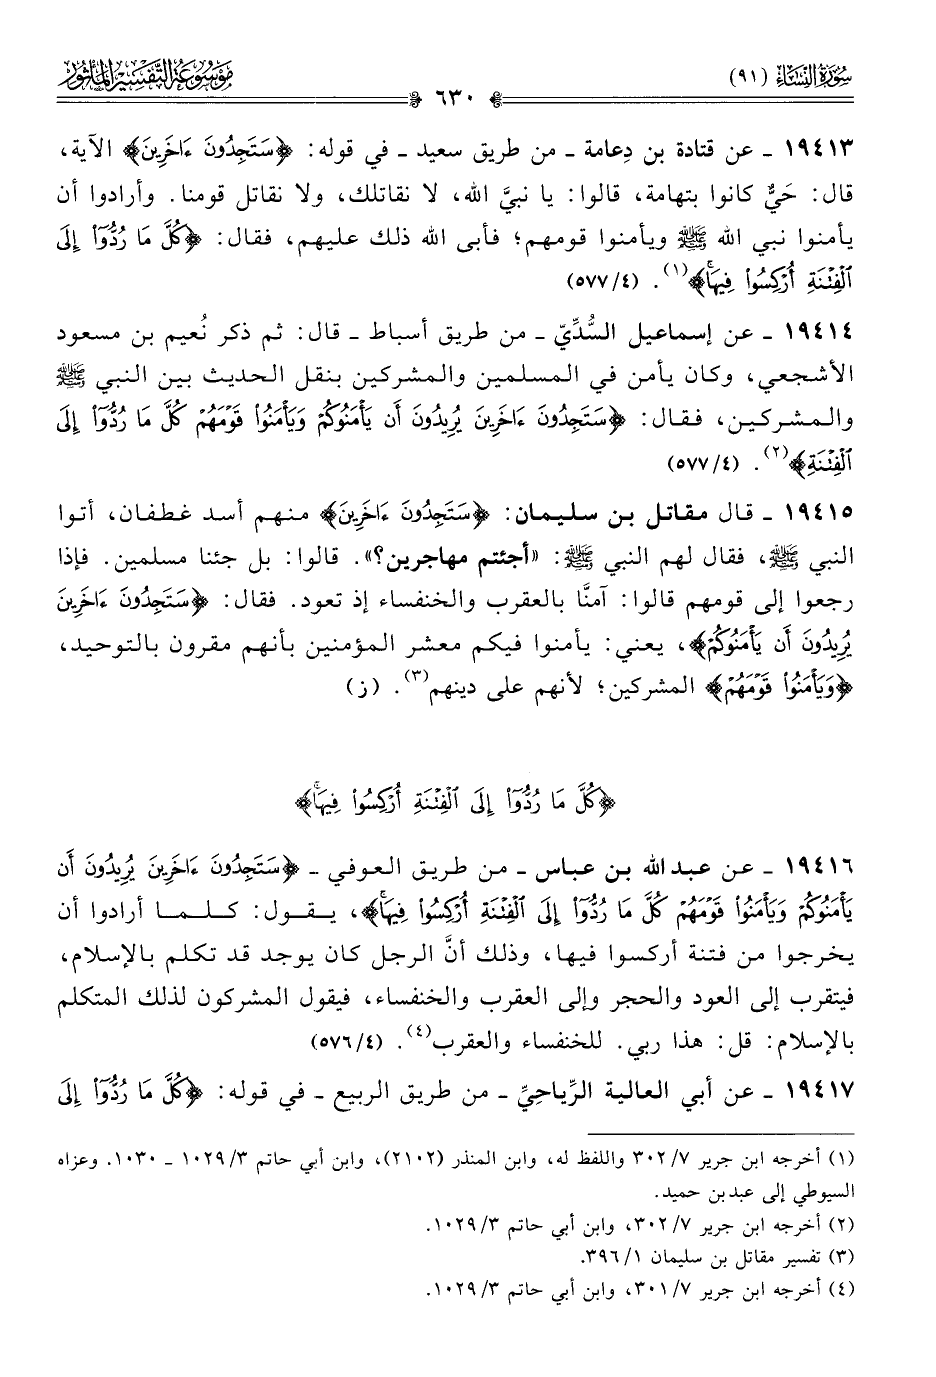 سُورَةُ النِّسَاءِ (٩١)
٦٣٠
مَوْسُوعَةُ التَّفْسِيرِ المَأْثُورِ
١٩٤١٣ ـ عن قتادة بن دِعامة ـ من طريق سعيد ـ في قوله: ﴿سَتَجِدُونَ ءَاخَرِينَ﴾ الآية،
قال: حَيٌّ كانوا بتهامة، قالوا: يا نبيَّ الله، لا نقاتلك، ولا نقاتل قومنا. وأرادوا أن
يأمنوا نبي الله ﷺ ويأمنوا قومهم؛ فأبى الله ذلك عليهم، فقال: ﴿كُلَّ مَا رُدُّوٓا۟ إِلَى
ٱلْفِتْنَةِ أُرْكِسُوا۟ فِيهَاۚ﴾(١). (٥٧٧/٤)
١٩٤١٤ ـ عن إسماعيل السُّدِّيّ ـ من طريق أسباط ـ قال: ثم ذكر نُعيم بن مسعود
الأشجعي، وكان يأمن في المسلمين والمشركين بنقل الحديث بين النبي ﷺ
والمشركين، فقال: ﴿سَتَجِدُونَ ءَاخَرِينَ يُرِيدُونَ أَن يَأْمَنُوكُمْ وَيَأْمَنُوا۟ قَوْمَهُمْ كُلَّ مَا رُدُّوٓا۟ إِلَى
ٱلْفِتْنَةِ﴾(٢). (٥٧٧/٤)
١٩٤١٥ ـ قال مقاتل بن سليمان: ﴿سَتَجِدُونَ ءَاخَرِينَ﴾ منهم أسد غطفان، أتوا
النبي ﷺ، فقال لهم النبي ﷺ: «أجئتم مهاجرين؟». قالوا: بل جئنا مسلمين. فإذا
رجعوا إلى قومهم قالوا: آمنَّا بالعقرب والخنفساء إذ تعود. فقال: ﴿سَتَجِدُونَ ءَاخَرِينَ
يُرِيدُونَ أَن يَأْمَنُوكُمْ﴾، يعني: يأمنوا فيكم معشر المؤمنين بأنهم مقرون بالتوحيد،
﴿وَيَأْمَنُوا۟ قَوْمَهُمْ﴾ المشركين؛ لأنهم على دينهم(٣). (ز)
﴿كُلَّ مَا رُدُّوٓا۟ إِلَى ٱلْفِتْنَةِ أُرْكِسُوا۟ فِيهَاۚ﴾
١٩٤١٦ ـ عن عبد الله بن عباس ـ من طريق العوفي ـ ﴿سَتَجِدُونَ ءَاخَرِينَ يُرِيدُونَ أَن
يَأْمَنُوكُمْ وَيَأْمَنُوا۟ قَوْمَهُمْ كُلَّ مَا رُدُّوٓا۟ إِلَى ٱلْفِتْنَةِ أُرْكِسُوا۟ فِيهَاۚ﴾، يقول: كلما أرادوا أن
يخرجوا من فتنة أركسوا فيها، وذلك أنَّ الرجل كان يوجد قد تكلم بالإسلام،
فيتقرب إلى العود والحجر وإلى العقرب والخنفساء، فيقول المشركون لذلك المتكلم
بالإسلام: قل: هذا ربي. للخنفساء والعقرب(٤). (٥٧٦/٤)
١٩٤١٧ ـ عن أبي العالية الرِّياحِيِّ ـ من طريق الربيع ـ في قوله: ﴿كُلَّ مَا رُدُّوٓا۟ إِلَى
(١) أخرجه ابن جرير ٧/ ٣٠٢ واللفظ له، وابن المنذر (٢١٠٢)، وابن أبي حاتم ٣/ ١٠٢٩ ـ ١٠٣٠. وعزاه
السيوطي إلى عبد بن حميد.
(٢) أخرجه ابن جرير ٧/ ٣٠٢، وابن أبي حاتم ٣/ ١٠٢٩.
(٣) تفسير مقاتل بن سليمان ١/ ٣٩٦.
(٤) أخرجه ابن جرير ٧/ ٣٠١، وابن أبي حاتم ٣/ ١٠٢٩.